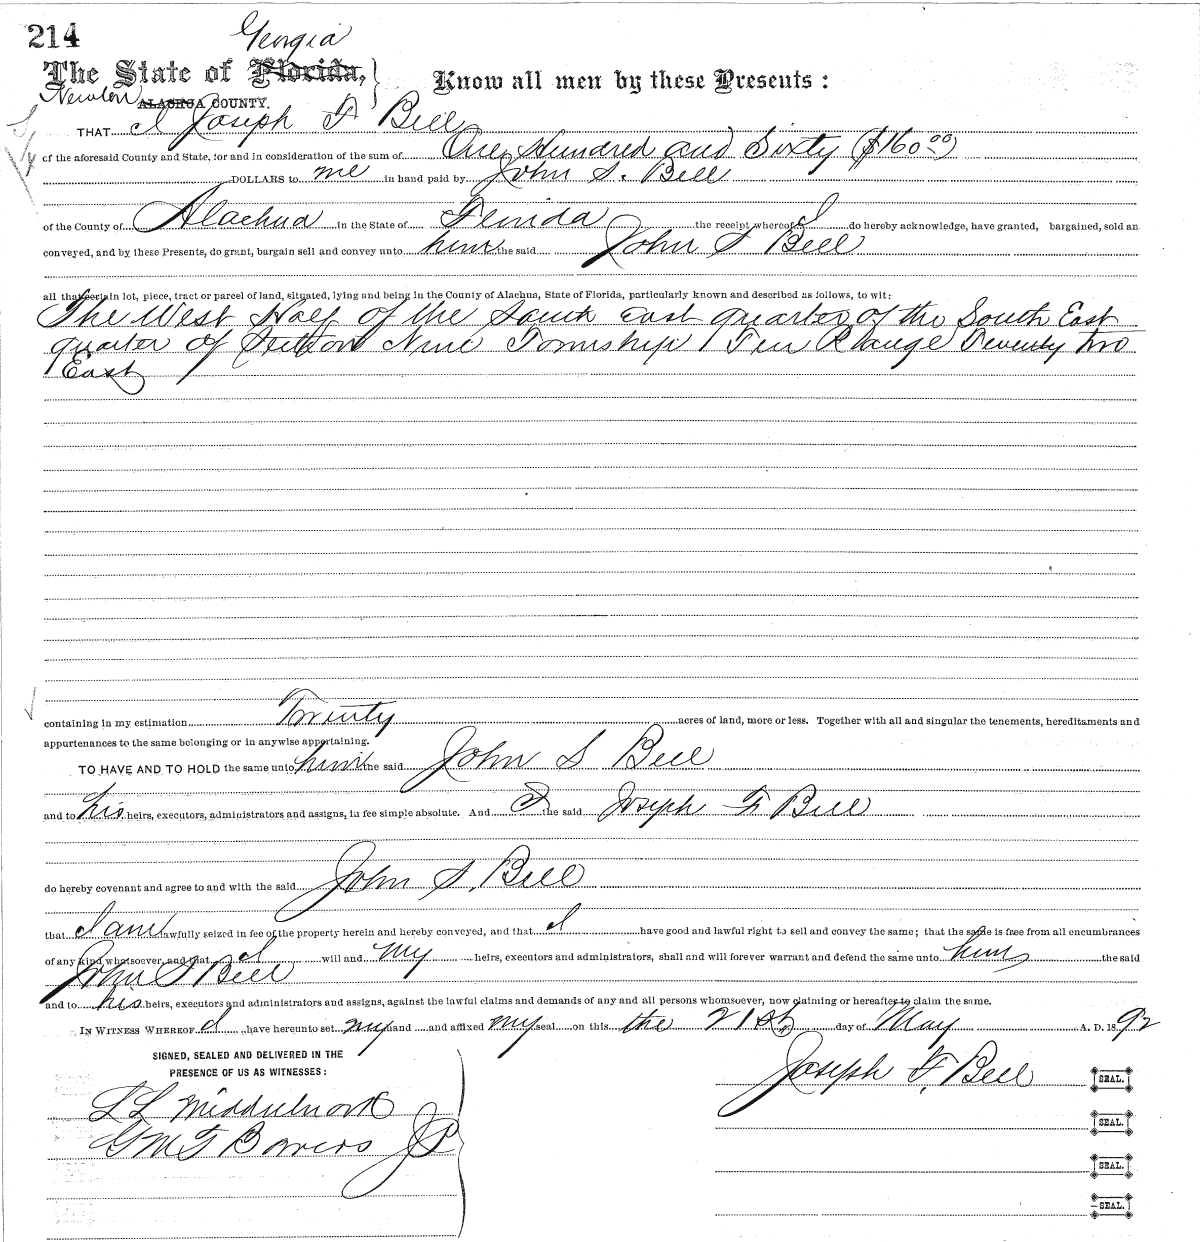 214
Georgia
The State of Florida,
Newton
ALACHUA COUNTY.
Know all men by these Presents:
THAT I Joseph F Bell
of the aforesaid County and State, for and in consideration of the sum of One Hundred and Sixty ($160.00)
DOLLARS to me in hand paid by John S. Bell
of the County of Alachua in the State of Florida the receipt whereof I do hereby acknowledge, have granted, bargained, sold an
conveyed, and by these Presents, do grant, bargain sell and convey unto him the said John S Bell
all that certain lot, piece, tract or parcel of land, situated, lying and being in the County of Alachua, State of Florida, particularly known and described as follows, to wit:
The West Half of the South East quarter of the South East
quarter of Section Nine Township Ten Range Twenty two
East
containing in my estimation Twenty acres of land, more or less. Together with all and singular the tenements, hereditaments and
appurtenances to the same belonging or in anywise appertaining.
TO HAVE AND TO HOLD the same unto him the said John S Bell
and to his heirs, executors, administrators and assigns, in fee simple absolute. And I the said Joseph F Bell
do hereby covenant and agree to and with the said John S. Bell
that I am lawfully seized in fee of the property herein and hereby conveyed, and that I have good and lawful right to sell and convey the same; that the same is free from all encumbrances
of any kind whatsoever, and that I will and my heirs, executors and administrators, shall and will forever warrant and defend the same unto him the said
John S Bell
and to his heirs, executors and administrators and assigns, against the lawful claims and demands of any and all persons whomsoever, now claiming or hereafter to claim the same.
IN WITNESS WHEREOF I have hereunto set my hand and affixed my seal on this the 21st day of May A. D. 1892
SIGNED, SEALED AND DELIVERED IN THE
PRESENCE OF US AS WITNESSES:
Joseph F. Bell SEAL.
L L Middlebrook SEAL.
G M T Bowers JP SEAL.
SEAL.